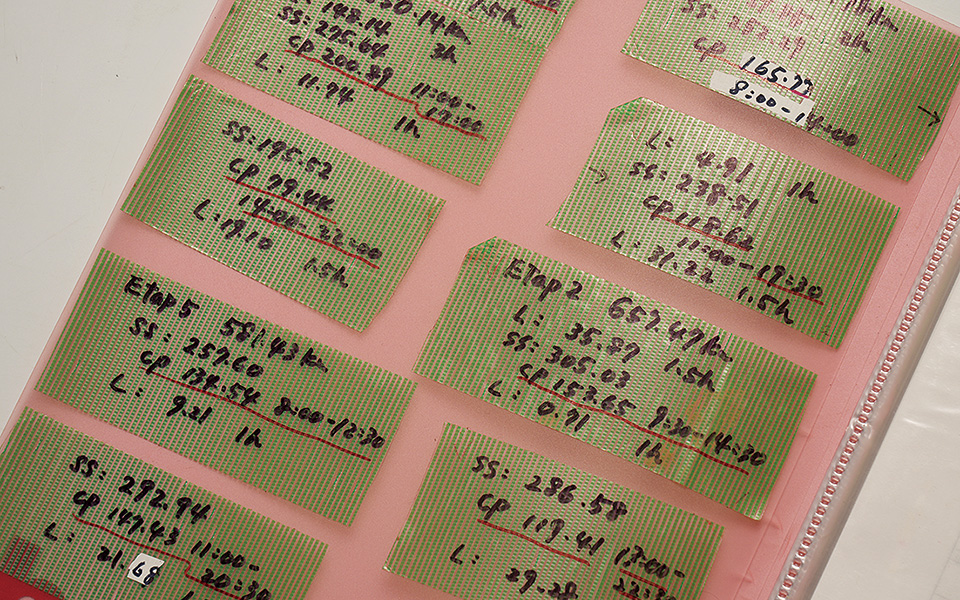 148.14 2h
SS: 275.64
CP 200.89 11:00-
L: 11.94 17:00
1h
SS: 195.52
CP 79.44
14:00-22:00
L: 19.10
1.5h
Etap 5 581.43 km
SS: 257.60
CP 134.54 8:00-12:30
L: 9.21 1h
SS: 292.94
CP 147.43 11:00-
L: 21.68 20:30
SS:
CP 165.77
8:00-14:00
L: 4.91 1h
SS: 238.51
CP 118.62
11:00-19:30
L: 31.22 1.5h
Etap 2 657.49 km
L: 35.87 1.5h
SS: 305.03
CP 153.65 9:30-14:30
L: 0.71 1h
SS: 286.58
CP 119.41
L: 29.28